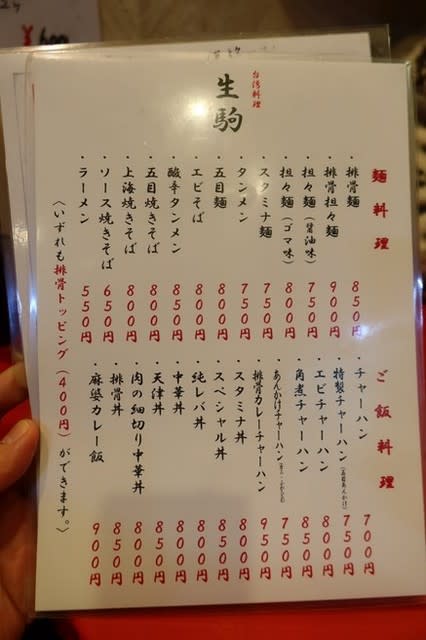 台湾料理
生駒
麺料理
・排骨麺 850円
・排骨担々麺 900円
・担々麺(醤油味) 750円
・担々麺(ゴマ味) 800円
・スタミナ麺 750円
・タンメン 750円
・五目麺 800円
・エビそば 800円
・酸辛タンメン 850円
・五目焼きそば 800円
・上海焼きそば 800円
・ソース焼きそば 650円
・ラーメン 550円
〈いずれも排骨トッピング(400円)ができます。〉
ご飯料理
・チャーハン 700円
・特製チャーハン(五目あんかけ) 750円
・エビチャーハン 800円
・角煮チャーハン 850円
・あんかけチャーハン 750円
・排骨カレーチャーハン 950円
・スタミナ丼 800円
・スペシャル丼 800円
・純レバ丼 800円
・中華丼 800円
・天津丼 800円
・肉の細切り中華丼 850円
・排骨丼 850円
・麻婆カレー飯 900円